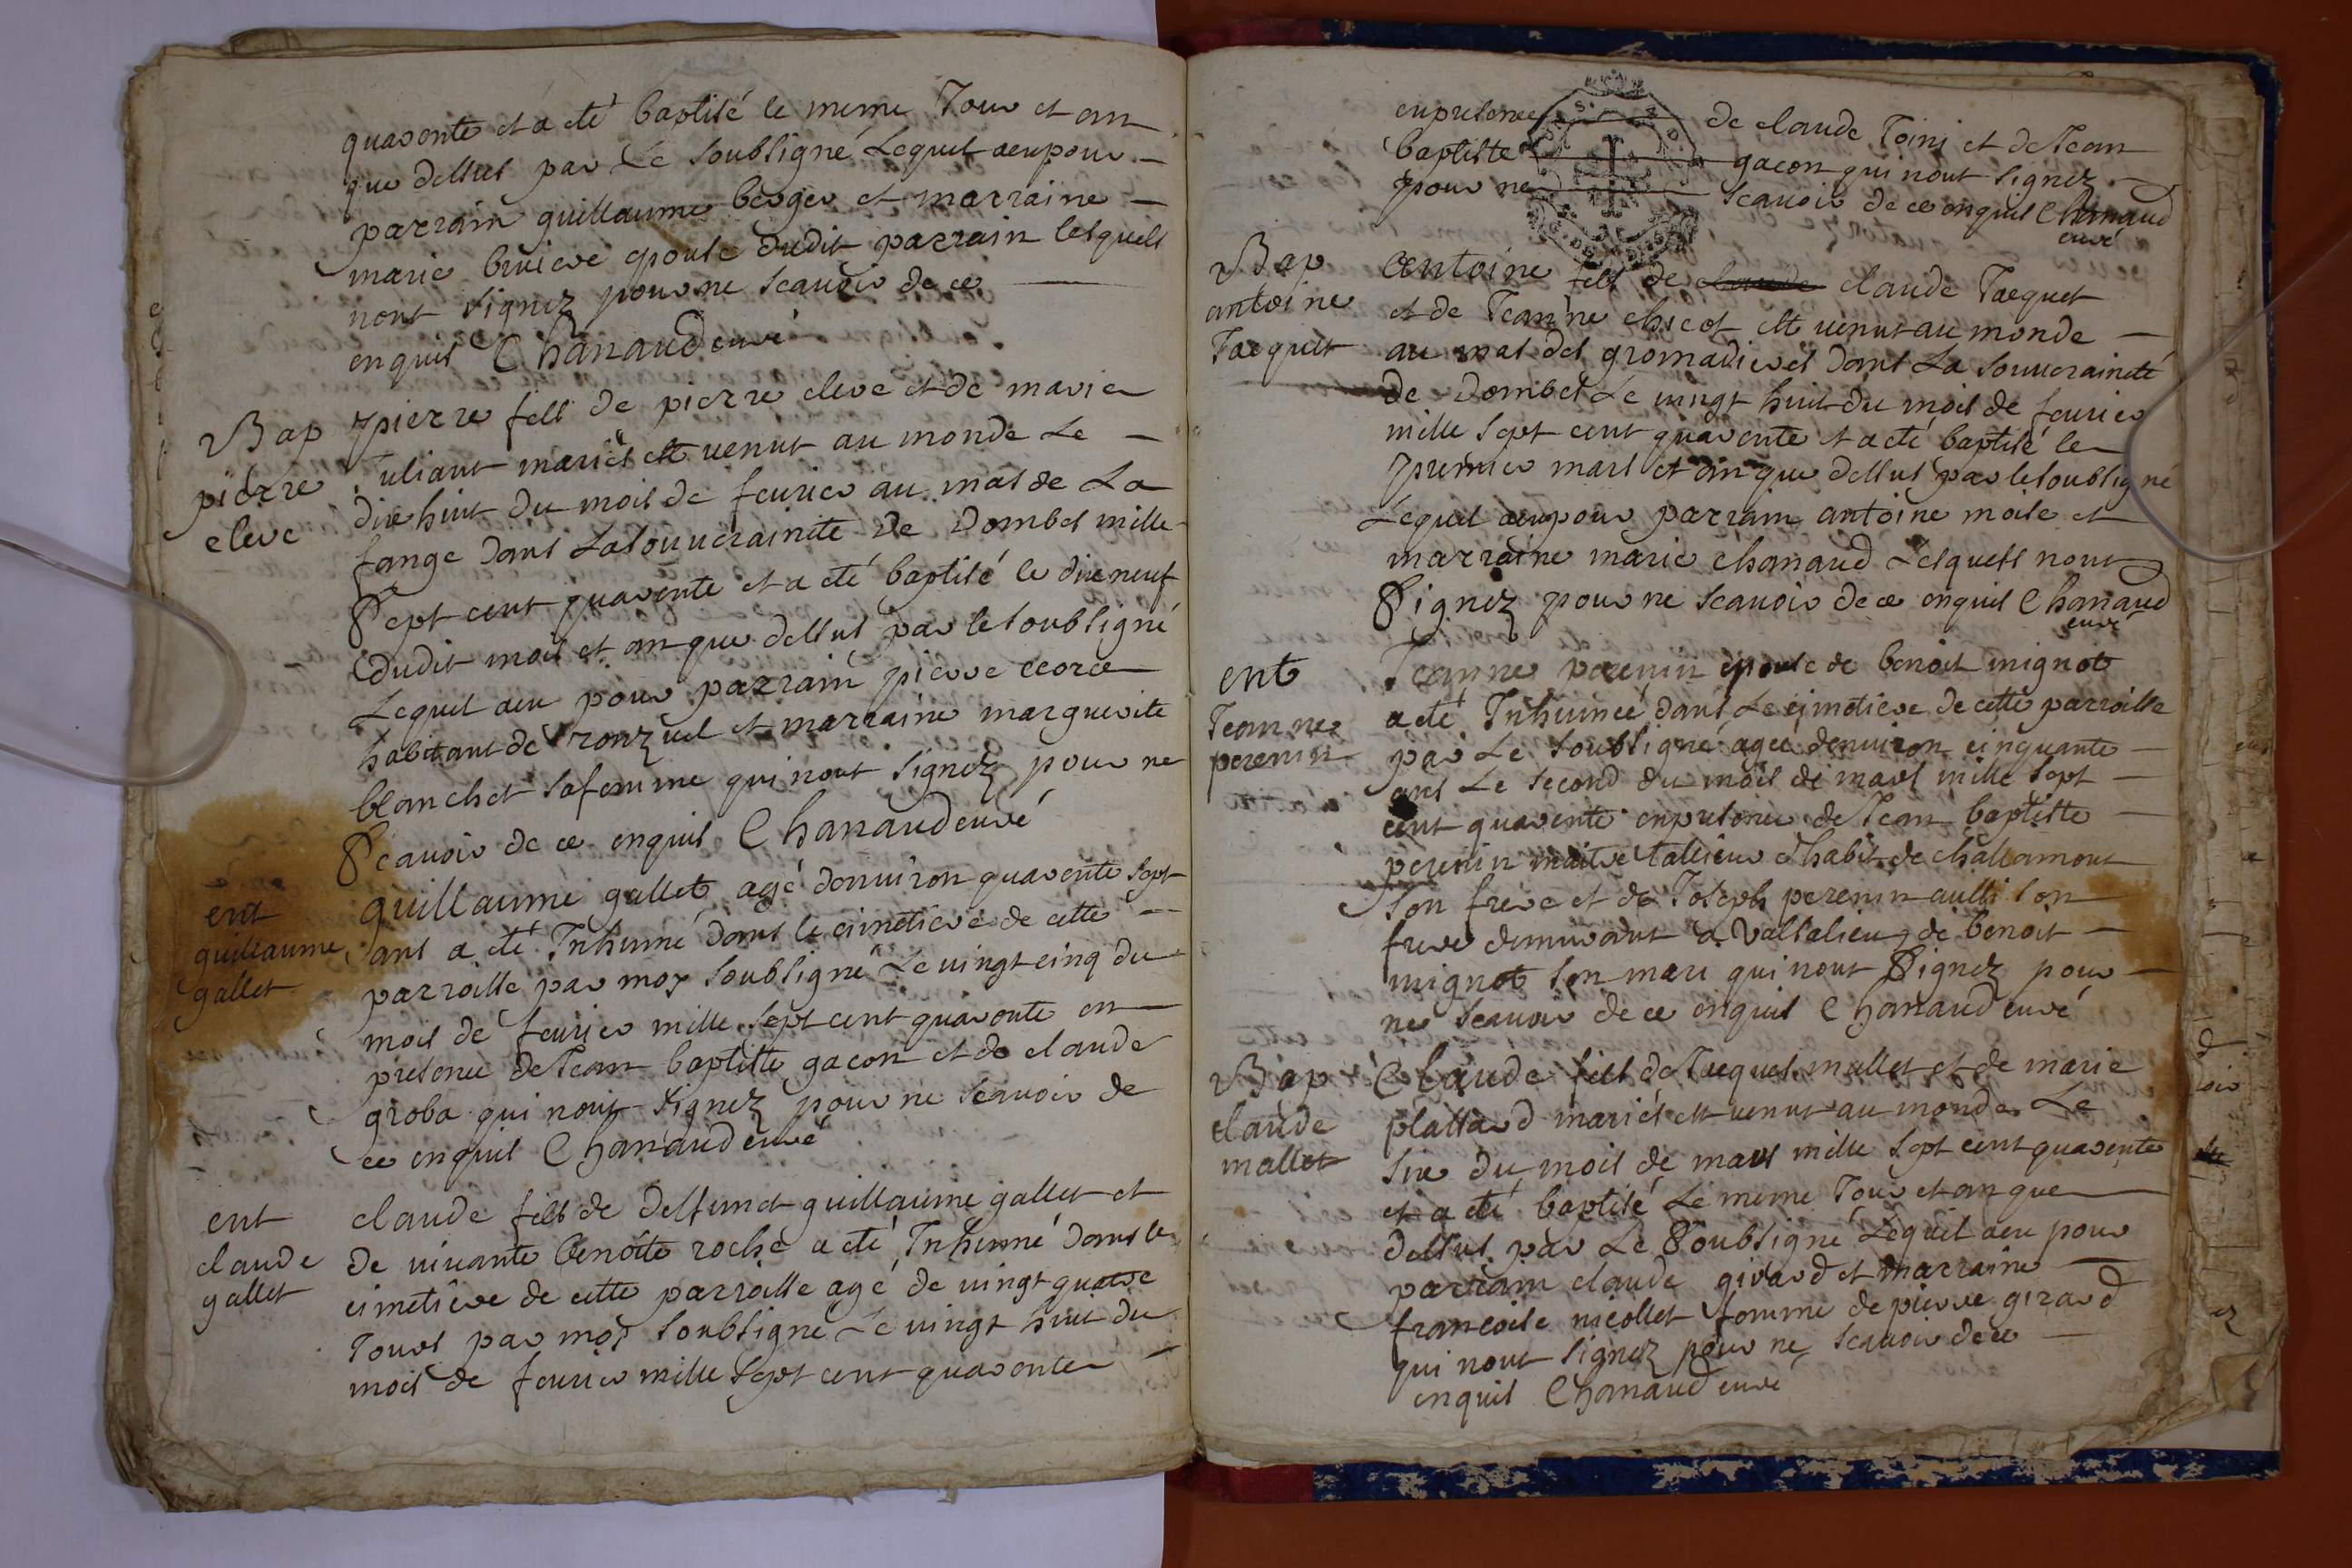 quarente et a eté baptisé le meme Jour et an
que dessus par Le soubsigné Lequel aeu pour
parrain guillaume berger et marraine
marie bruiere epouse dudit parrain lesquels
nont signez pour ne scauoir de ce
enquis Chanaud curé
Bap
pierre
cleve
pierre fils de pierre cleve et de marie
uliant mariés est venut au monde Le
dix huit du mois de feurier au mas de La
fange dans La souueraineté de Dombes mille
Sept cent quarente et a eté baptisé le dix neuf
dudit mois et an que dessus par le soubsigné
Lequel aeu pour parrain pierre
habitant de ronzuel et marraine marguerite
blanchet sa femme qui nont signez pour ne
Scauoir de ce enquis Chanaud curé
ent
guillaume
gallet
guillaume gallet agé denuiron quarente sept
ans a eté Inhumé dans le cimetiere de cette
parroisse par moy soubsigné Le vingt cinq du
mois de feurier mille sept cent quarente en
presence de Jean baptiste gacon et de claude
groba qui nont signez pour ne scauoir de
ce enquis Chanaud curé
ent
claude
gallet
claude fils de deffunct guillaume gallet et
de viuante benoite roche a eté Inhumé dans le
cimetiere de cette parroisse agé de vingt quatre
Jours par moy soubsigné Le vingt huit du
mois de feurier mille sept cent quarente
en presence de claude Toini et de Jean
baptiste gacon qui nont signez
pour ne scauoir de ce enquis Chanaud
curé
Bap
antoine
Jacquet
Antoine fils de claude claude Jacquet
et de Jeanne chicot est venut au monde
au mas des gromadieres dans La souueraineté
de Dombes Le vingt huit du mois de feurier
mille sept cent quarente et a eté baptisé le
premier mars et an que dessus par le soubsigné
Lequel aeu pour parrain antoine moise et
marraine marie chanaud Lesquels nont
Signez pour ne scauoir de ce enquis Chanaud
curé
ent
Jeanne
perenin
Jeanne perenin epouse de benoit mignot
a eté Inhumée dans Le cimetiere de cette parroisse
par Le soubsigné ageé denuiron cinquante
ans Le second du mois de mars mille sept
cent quarente en presence de Jean baptiste
perenin maitre tallieur dhabit de chalamont
son frere et de Joseph perenin aussi son
frere demurant a Valsalieu de benoit
mignot son mari qui nont Signez pour
ne scauoir de ce enquis Chanaud curé
Bap
claude
mallet
Claude fils de Jacques mallet et de marie
plattard mariés est venut au monde Le
six du mois de mars mille sept cent quarente
et a eté baptisé Le meme Jour et an que
dessus par Le Soubsigné Lequel aeu pour
parrain claude girard et marraine
francoise nicollet femme de pierre girard
qui nont signez pour ne scauoir de ce
enquis Chanaud curé